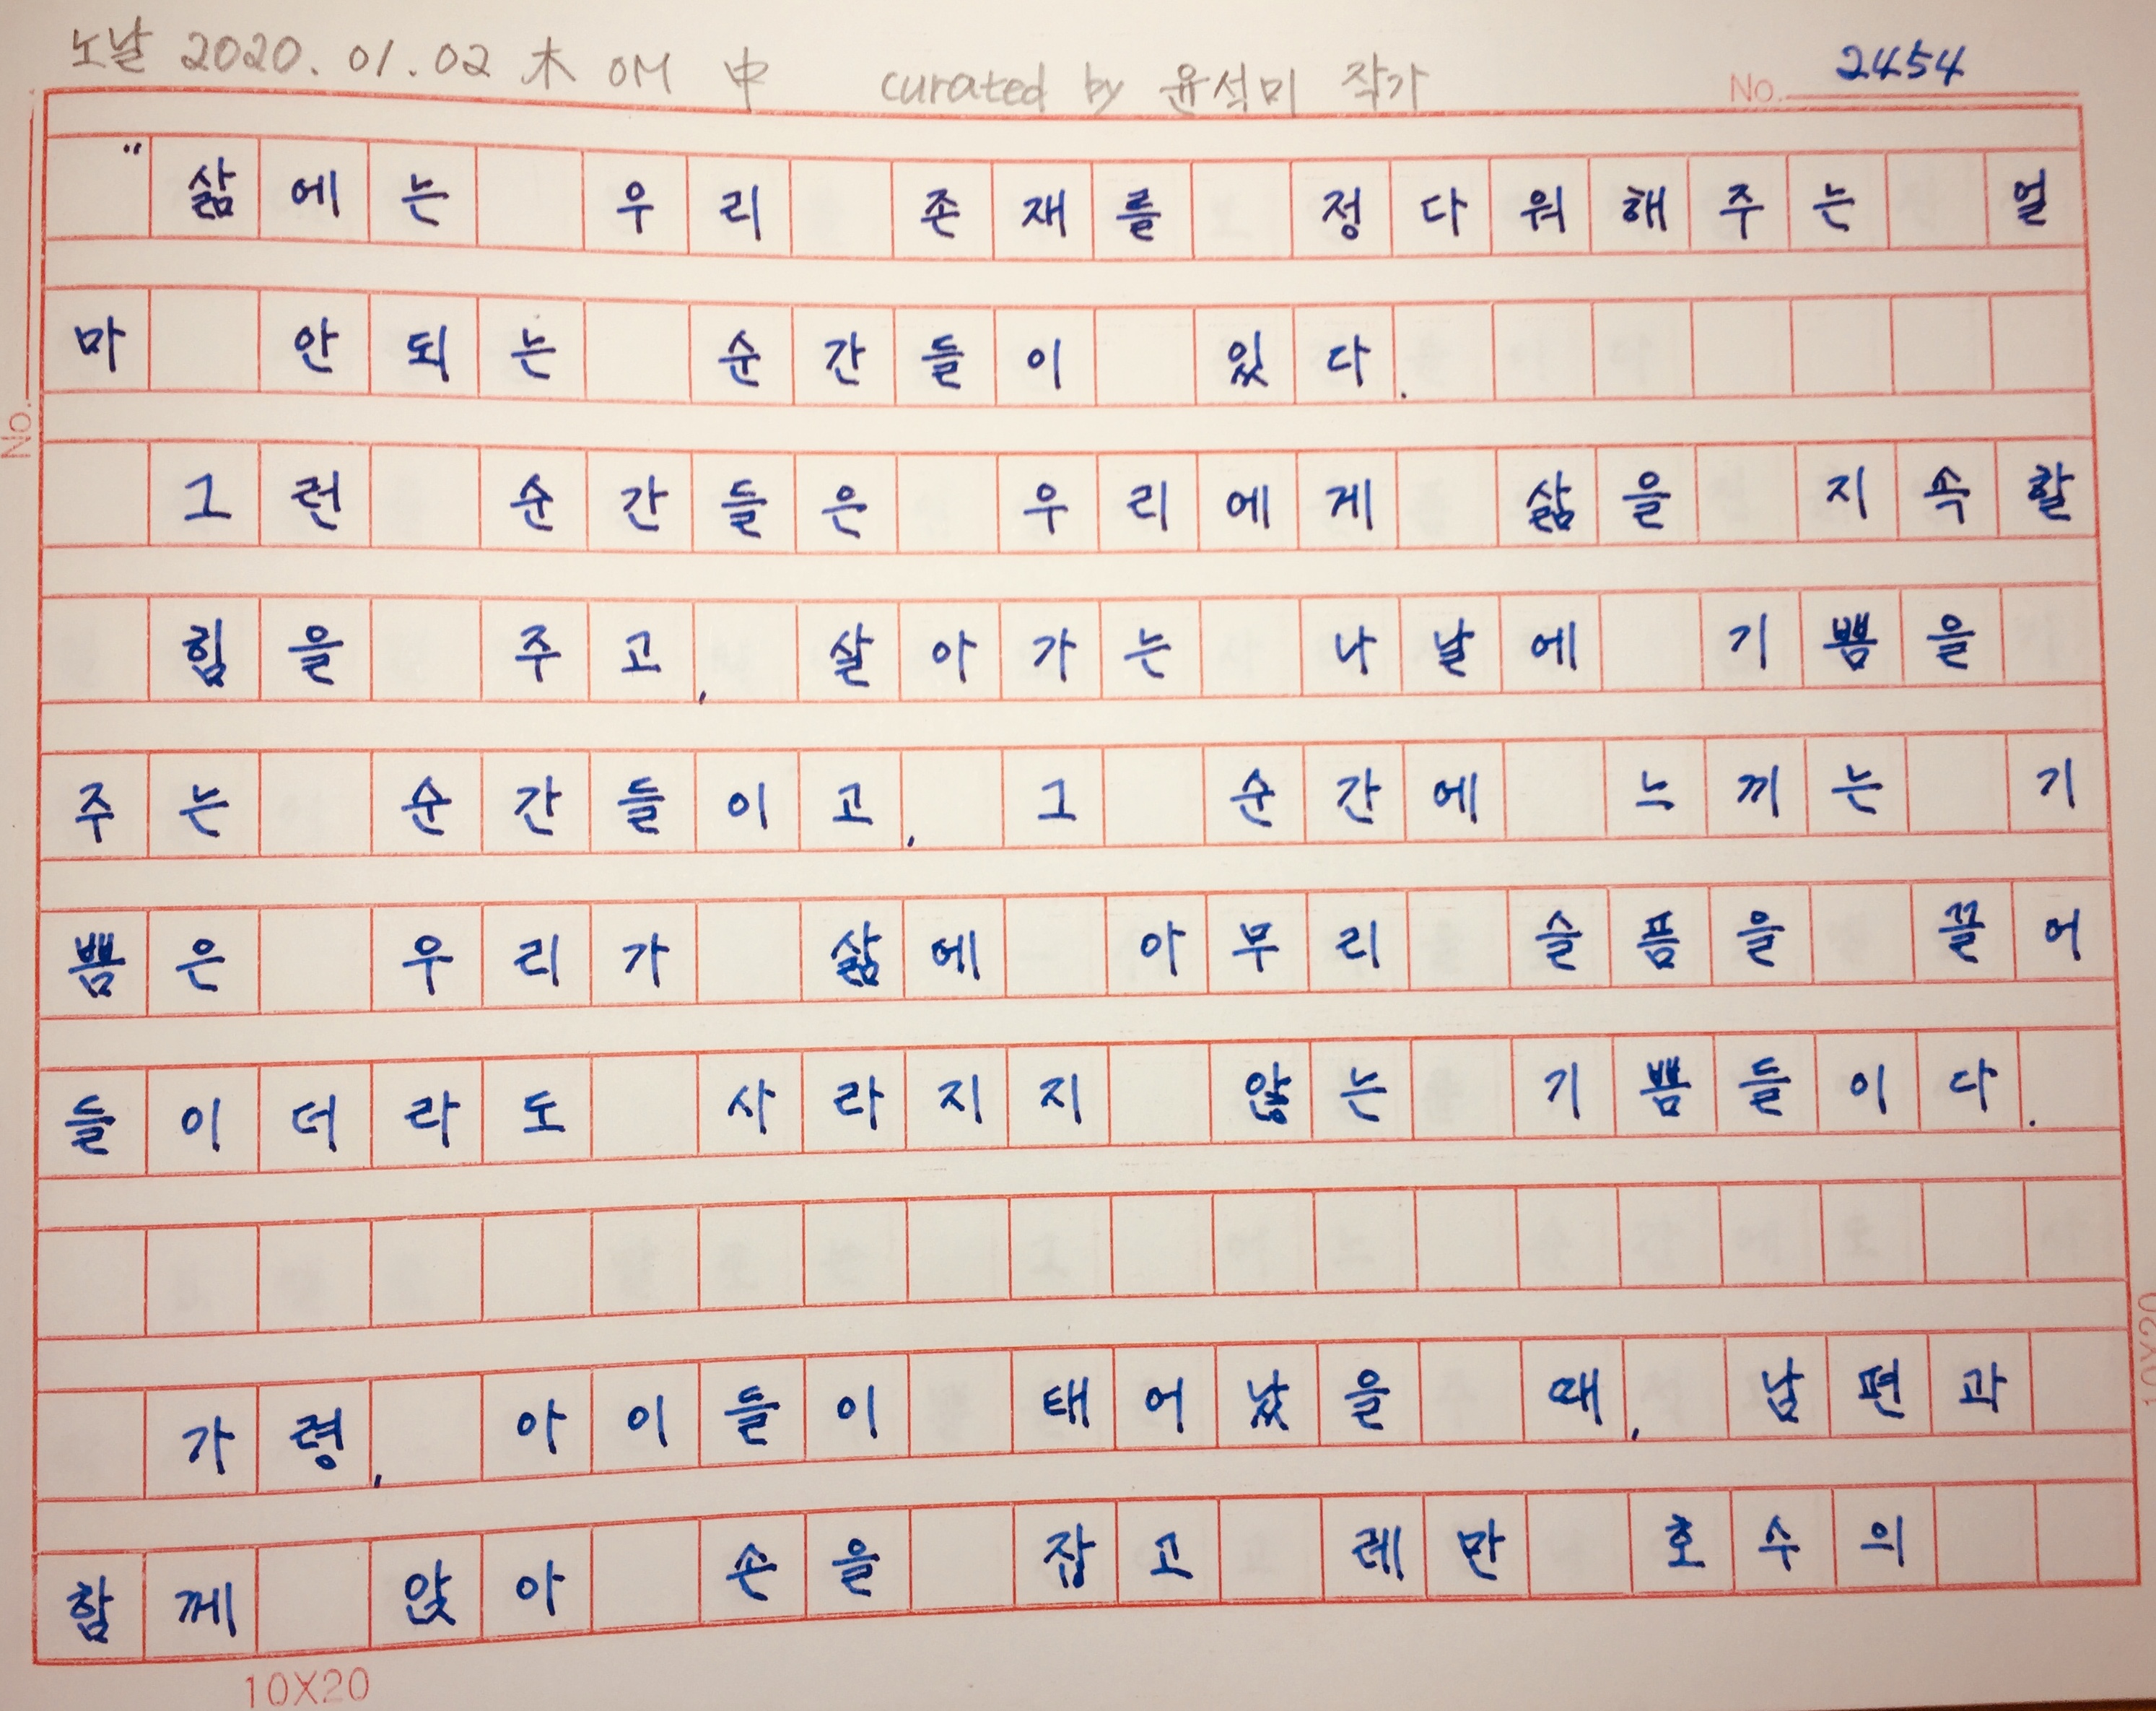 노날 2020. 01. 02 木 OM 中 curated by 윤석미 작가 No. 2454
"삶에는 우리 존재를 정다워해주는 얼
마 안 되는 순간들이 있다.
그런 순간들은 우리에게 삶을 지속할
힘을 주고, 살아가는 나날에 기쁨을
주는 순간들이고, 그 순간에 느끼는 기
쁨은 우리가 삶에 아무리 슬픔을 끌어
들이더라도 사라지지 않는 기쁨들이다.
가령, 아이들이 태어났을 때, 남편과
함께 앉아 손을 잡고 레만 호수의
No.
10X20
10X20